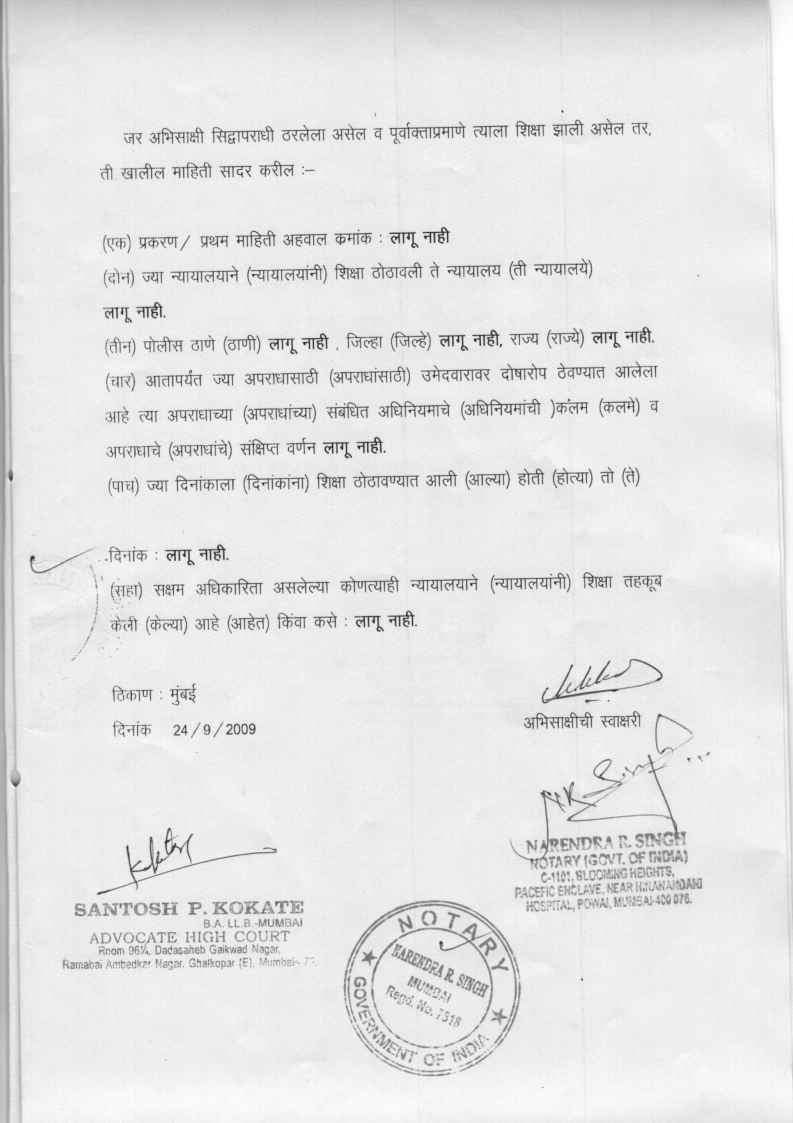 जर अभिसाक्षी सिद्वापराधी ठरलेला असेल व पूर्वाक्ताप्रमाणे त्याला शिक्षा झाली असेल तर,
ती खालील माहिती सादर करील :–
(एक) प्रकरण / प्रथम माहिती अहवाल क्रमांक : लागू नाही
(दोन) ज्या न्यायालयाने (न्यायालयांनी) शिक्षा ठोठावली ते न्यायालय (ती न्यायालये)
लागू नाही.
(तीन) पोलीस ठाणे (ठाणी) लागू नाही , जिल्हा (जिल्हे) लागू नाही, राज्य (राज्ये) लागू नाही.
(चार) आतापर्यंत ज्या अपराधासाठी (अपराधांसाठी) उमेदवारावर दोषारोप ठेवण्यात आलेला
आहे त्या अपराधाच्या (अपराधांच्या) संबंधित अधिनियमाचे (अधिनियमांची )कलम (कलमे) व
अपराधाचे (अपराधांचे) संक्षिप्त वर्णन लागू नाही.
(पाच) ज्या दिनांकाला (दिनांकांना) शिक्षा ठोठावण्यात आली (आल्या) होती (होत्या) तो (ते)
दिनांक : लागू नाही.
(सहा) सक्षम अधिकारिता असलेल्या कोणत्याही न्यायालयाने (न्यायालयांनी) शिक्षा तहकूब
केली (केल्या) आहे (आहेत) किंवा कसे : लागू नाही.
ठिकाण : मुंबई
दिनांक 24/9/2009
अभिसाक्षीची स्वाक्षरी
NARENDRA R. SINGH
NOTARY (GOVT. OF INDIA)
C-1101, BLOOMING HEIGHTS,
PACEFIC ENCLAVE, NEAR HIRANANDANI
HOSPITAL, POWAI, MUMBAI-400 076.
SANTOSH P. KOKATE
B.A. LL.B.-MUMBAI
ADVOCATE HIGH COURT
Room 96¼, Dadasaheb Gaikwad Nagar,
Ramabai Ambedkar Nagar, Ghatkopar (E), Mumbai-
NOTARY
NARENDRA R. SINGH
MUMBAI
Regd. No. 7518
GOVERNMENT OF INDIA